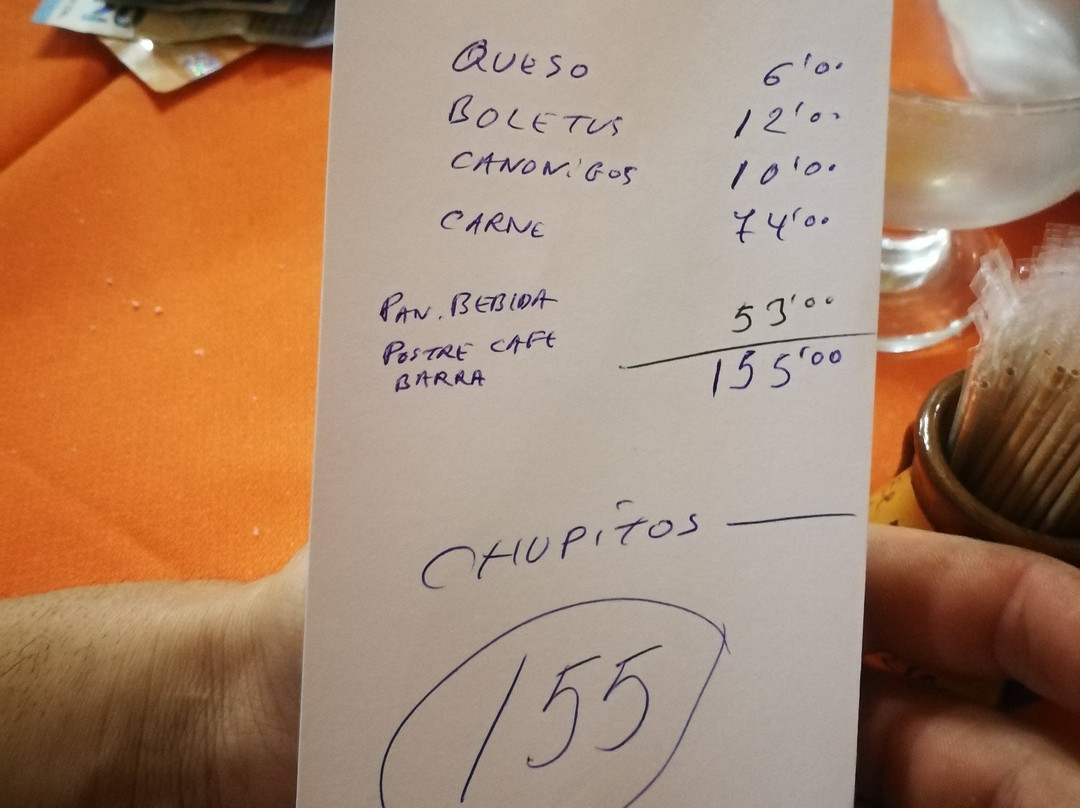 QUESO 6'00
BOLETUS 12'00
CANONiGOS 10'00
CARNE 74'00
PAN. BEBIDA 53'00
POSTRE CAFE
BARRA 155'00
CHUPiTOS —
155